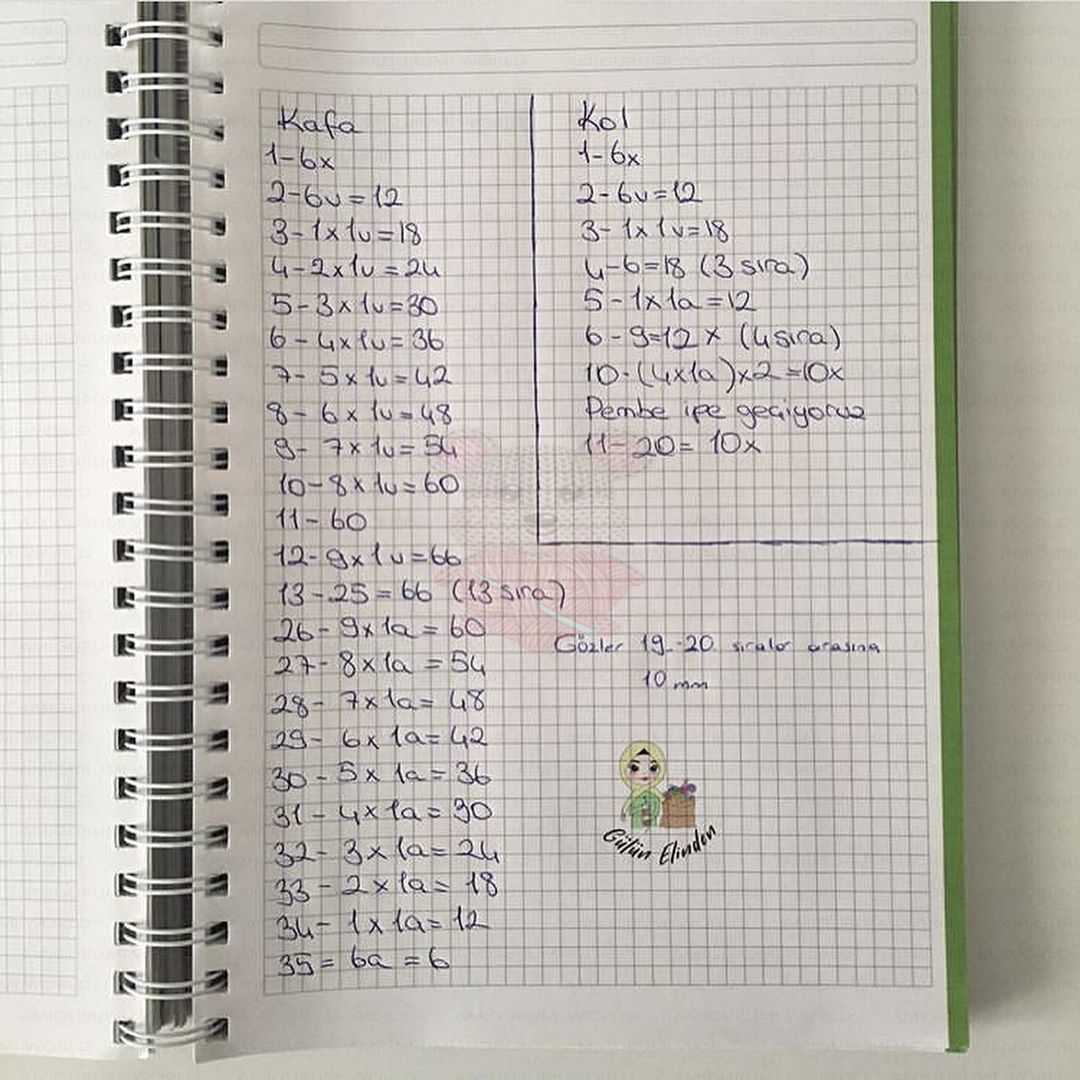 Kafa
1-6x
2-6v=12
3-1x1v=18
4-2x1v=24
5-3x1v=30
6-4x1v=36
7-5x1v=42
8-6x1v=48
9-7x1v=54
10-8x1v=60
11-60
12-9x1v=66
13-25=66 (13 sıra)
26-9x1a=60
27-8x1a=54
28-7x1a=48
29-6x1a=42
30-5x1a=36
31-4x1a=30
32-3x1a=24
33-2x1a=18
34-1x1a=12
35=6a=6
Kol
1-6x
2-6v=12
3-1x1v=18
4-6=18 (3 sıra)
5-1x1a=12
6-9=12x (4 sıra)
10-(4x1a)x2=10x
Pembe ipe geçiyoruz
11-20=10x
Gözler 19-20 sıralar arasına
10 mm
Gülün Elinden
AMIGURUMI WORLD